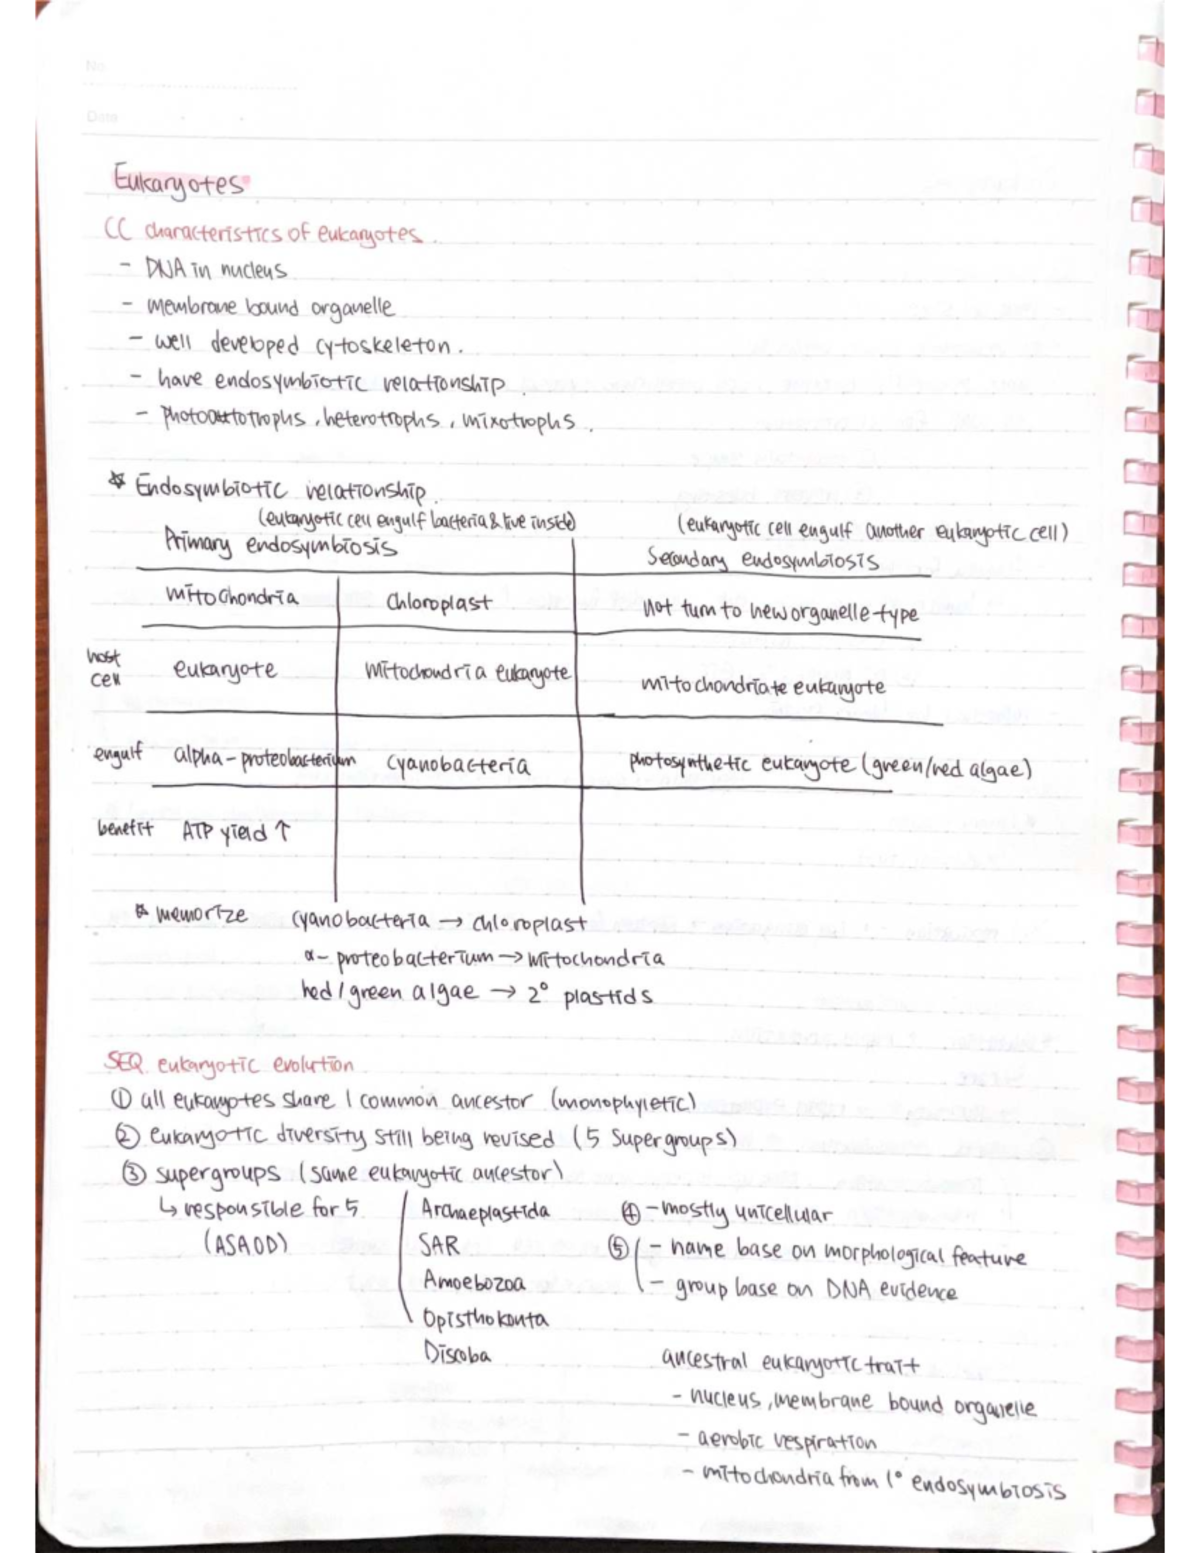 No.
Date
Eukaryotes
CC characteristics of eukaryotes.
- DNA in nucleus
- membrane bound organelle
- well developed cytoskeleton.
- have endosymbiotic relationship.
- photoautotrophs, heterotrophs, mixotrophs.
☆ Endosymbiotic relationship.
(eukaryotic cell engulf bacteria & live inside) (eukaryotic cell engulf another eukaryotic cell)
Primary endosymbiosis Secondary endosymbiosis
mitochondria chloroplast not turn to new organelle type
host cell eukaryote mitochondria eukaryote mitochondriate eukaryote
engulf alpha-proteobacterium cyanobacteria photosynthetic eukaryote (green/red algae)
benefit ATP yield ↑
☆ memorize cyanobacteria → chloroplast
α-proteobacterium → mitochondria
red/green algae → 2° plastids
SEQ. eukaryotic evolution.
① all eukaryotes share 1 common ancestor (monophyletic)
② eukaryotic diversity still being revised (5 supergroups)
③ supergroups (same eukaryotic ancestor)
↳ responsible for 5 Archaeplastida ④ - mostly unicellular
(ASAOD) SAR ⑤ - name base on morphological feature
Amoebozoa - group base on DNA evidence
Opisthokonta
Discoba ancestral eukaryotic trait
- nucleus, membrane bound organelle
- aerobic respiration
- mitochondria from 1° endosymbiosis